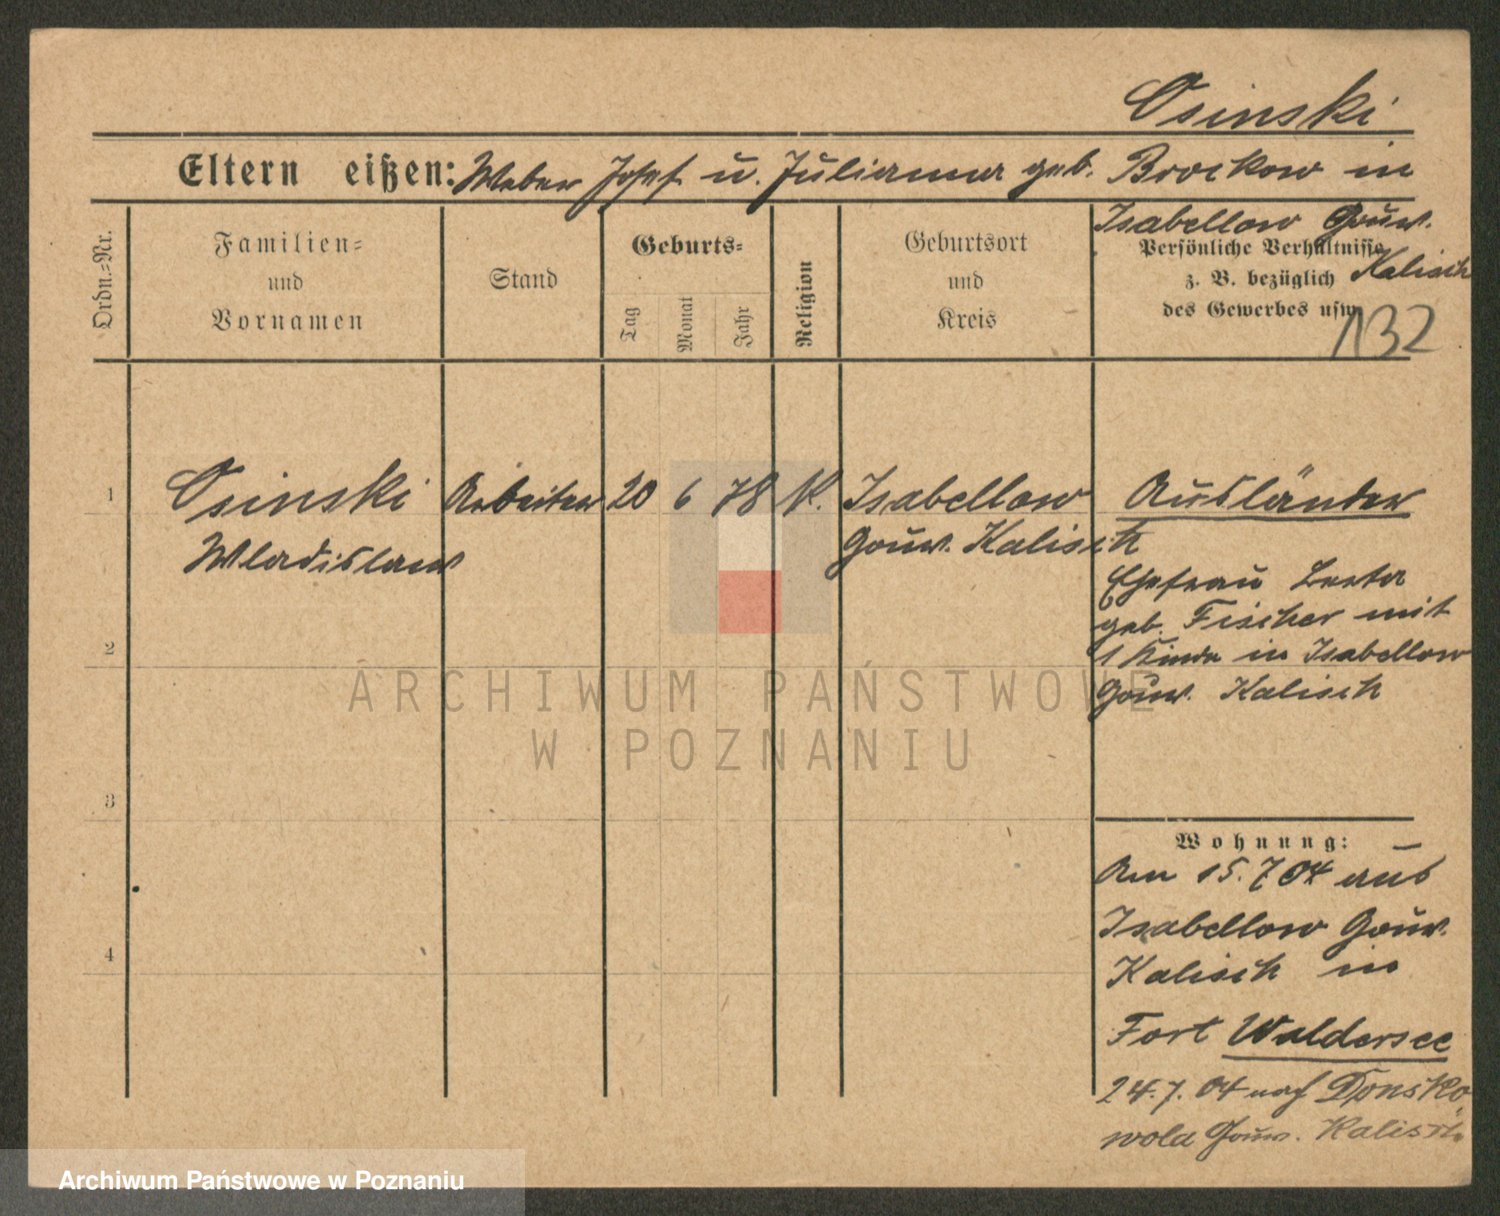 Osinski
Eltern eißen: Weber Josef u. Julianna geb. Brockow in
Isabellow Gouv.
Kalisch
Ordn.=Nr.
Familien=
und
Vornamen
Stand
Geburts=
Tag
Monat
Jahr
Religion
Geburtsort
und
Kreis
Persönliche Verhältnisse
z. B. bezüglich
des Gewerbes usw.
132
1 Osinski Arbeiter 20 6 78 K. Isabellow Ausländer
Wladislaw Gouv. Kalisch
Ehefrau
geb. Fischer mit
1 Kinde in Isabellow
Gouv. Kalisch
2
3
4
Wohnung:
Am 15.7 04 aus
Isabellow Gouv.
Kalisch in
Fort Waldersee
24.7. 04 nach Donsko
wola Gouv. Kalisch
ARCHIWUM PAŃSTWOWE
W POZNANIU
Archiwum Państwowe w Poznaniu